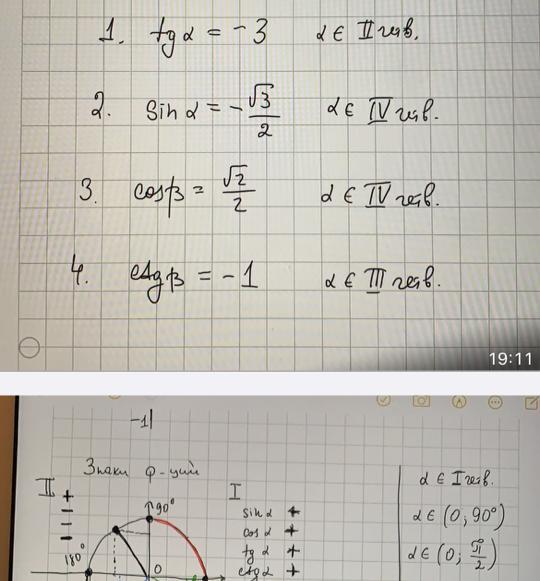 1. tg α = -3 α ∈ II четв.
2. sin α = -√3/2 α ∈ IV четв.
3. cos β = √2/2 α ∈ IV четв.
4. ctg β = -1 α ∈ III четв.
19:11
-1
Знаки ф-ций
II + - - -
90°
180°
0
I
sin α +
cos α +
tg α +
ctg α +
α ∈ I четв.
α ∈ (0; 90°)
α ∈ (0; π/2)